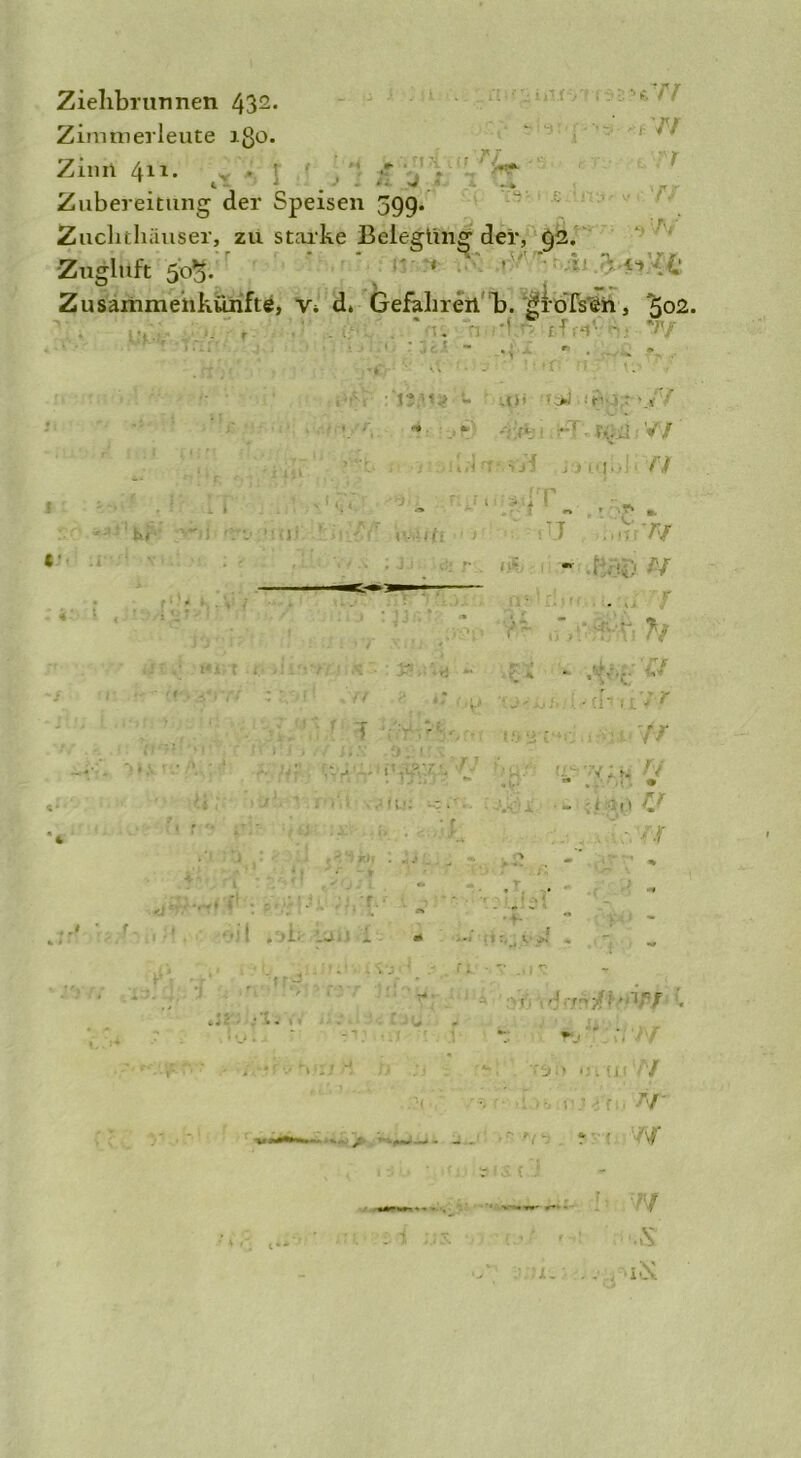 Ziehbrunnen 432.
Zimmerleute 190.
Zinn 411.
Zubereitung der Speisen 399.
Zuchthäuser, zu starke Belegung der, 92.
Zugluft 505.
Zusammenkünfte, v. d. Gefahren b. grofsen, 502.